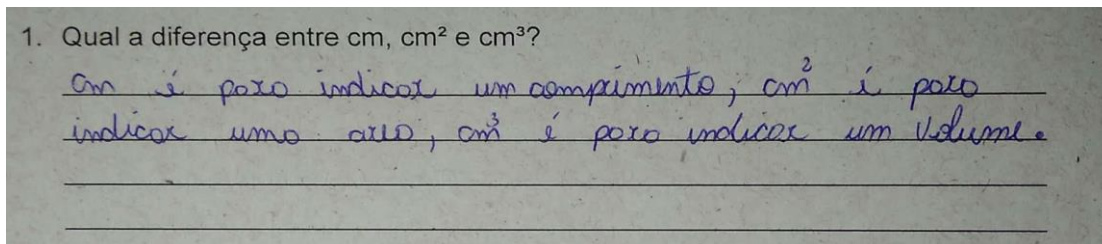 1. Qual a diferença entre cm, cm² e cm³?
cm é para indicar um comprimento, cm² é para
indicar uma area, cm³ é para indicar um volume.